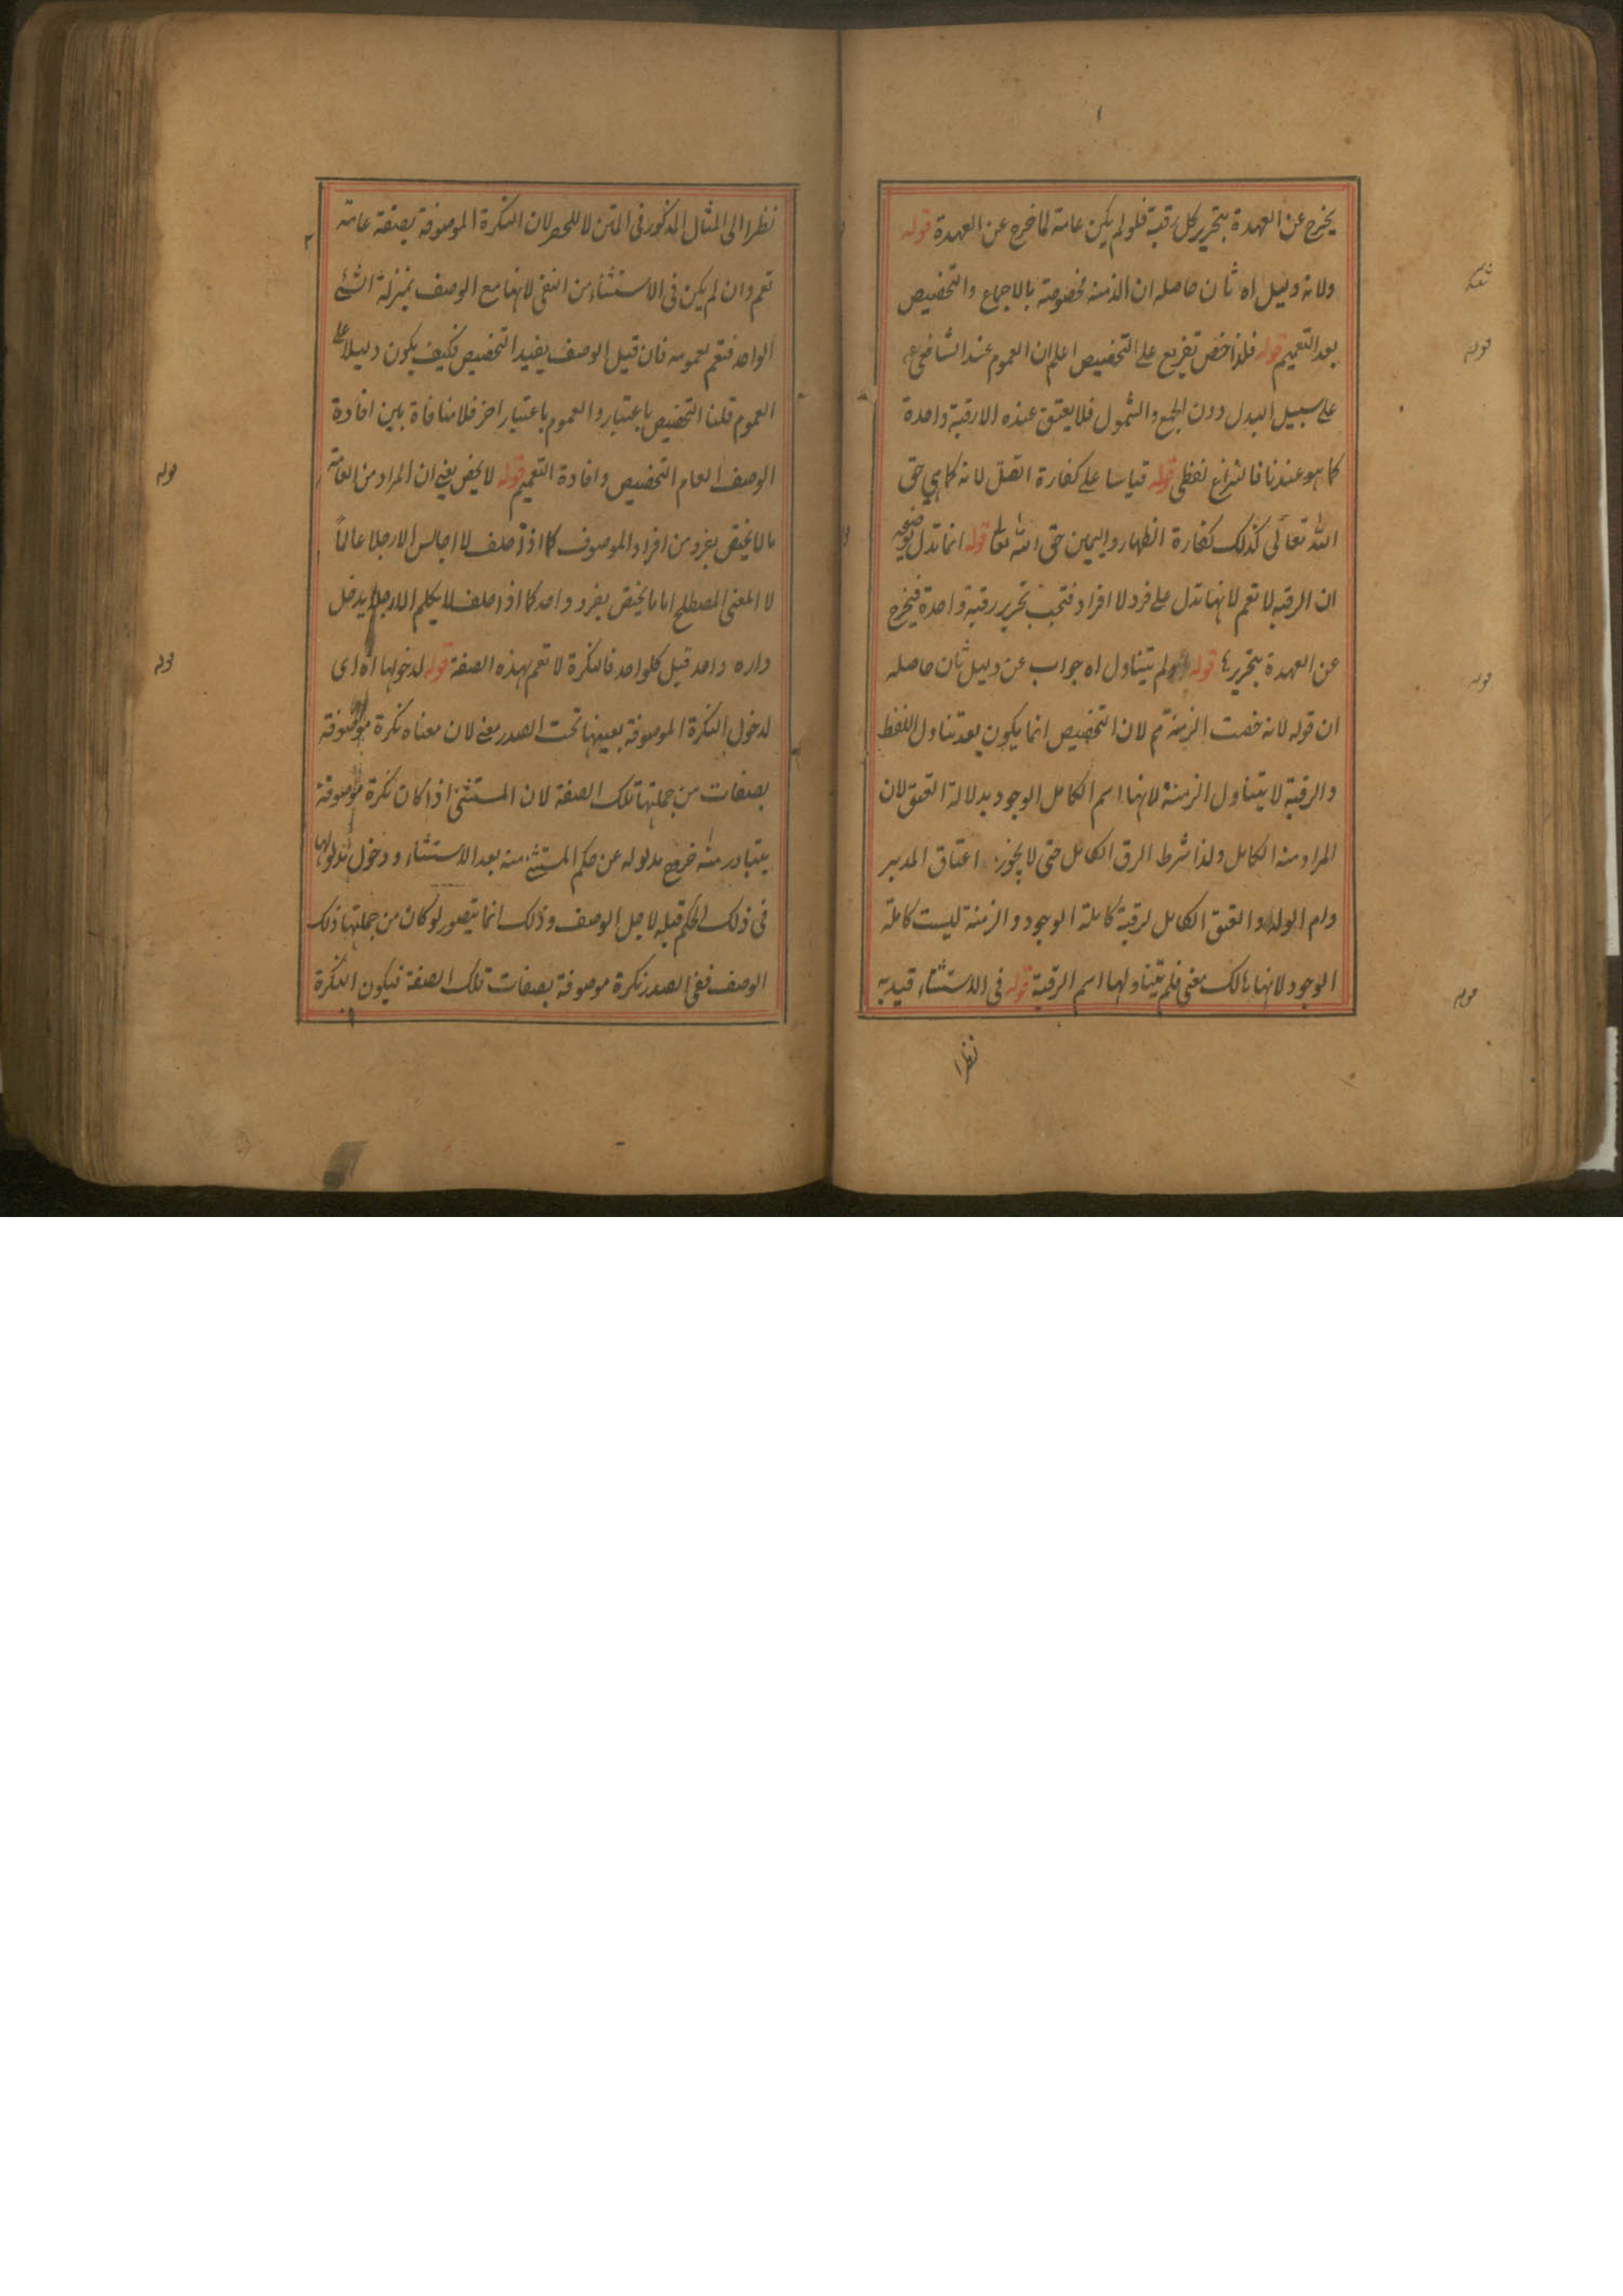 يخرج عن العهدة بتحرير كل رقبة فلو لم يكن عامة لما خرج عن العهدة قوله
ولانه دليل اه ثان حاصله ان الزمنه مخصوصة بالاجماع والتخصيص
بعد التعميم قوله فلذا خص تفريع على التخصيص اعلم ان العموم عند الشافعي
على سبيل البدل دون الجمع والشمول فلا يعتق عنده الا رقبة واحدة
كما هو عندنا فالنزاع لفظي قوله قياسا على كفارة القتل لانه كما هي حق
الله تعالى كذلك كفارة الظهار واليمين حق الله تعا قوله انما تدل
ان الرقبة لا تعم لانها تدل على فرد لا افراد فتجب تحرير رقبة واحدة فيخرج
عن العهدة بتحريرها قوله ولم يتناول اه جواب عن دليل ثان حاصله
ان قوله لانه خصت الزمنة مم لان التخصيص انما يكون بعد تناول اللفظ
والرقبة لا يتناول الزمنة لانها اسم الكامل الوجود بدلالة العتق لان
المراد منه الكامل ولذا شرط الرق الكامل حتى لا يجوز اعتاق المدبر
وام الولد والعتق الكامل لرقبة كاملة الوجود والزمنة ليست كاملة
الوجود لانها هالك معنى فلم يتناولها اسم الرقبة قوله فى الاستثناء قيد به
نظرا
نظرا الى المثال المذكور فى المتن لا للحصر لان النكرة الموصوفة بصفة عامة
تعم وان لم يكن فى الاستثناء من النفى لانها مع الوصف بمنزلة الشئ
الواحد فتعم بعمومه فان قيل الوصف يفيد التخصيص فكيف يكون دليلا على
العموم قلنا التخصيص باعتبار والعموم باعتبار اخر فلا منافاة بين افادة
الوصف العام التخصيص وافادة التعميم قوله لا يخص يعنى ان المراد من العامة
ما لا يختص بفرد من افراد الموصوف كما اذا حلف لا اجالس الا رجلا عالماً
لا المعنى المصطلح اما ما يختص بفرد واحد كما اذا حلف لا يكلم الا رجلا يدخل
داره واحد قبل كلواحد فالنكرة لا تعم بهذه الصفة قوله لدخولها اه اى
لدخول النكرة الموصوفة بعينها تحت الصدر معنى لان معناه نكرة موصوفة
بصفات من جملتها تلك الصفة لان المستثنى اذا كان نكرة موصوفة
يتبادر منه خروج مدلوله عن حكم المستثنى منه بعد الاستثناء ودخول مدلولها
فى ذلك الحكم قبله لاجل الوصف وذلك انما يتصور لو كان من جملتها ذلك
الوصف ففى الصدر نكرة موصوفة بصفات تلك الصفة فيكون النكرة